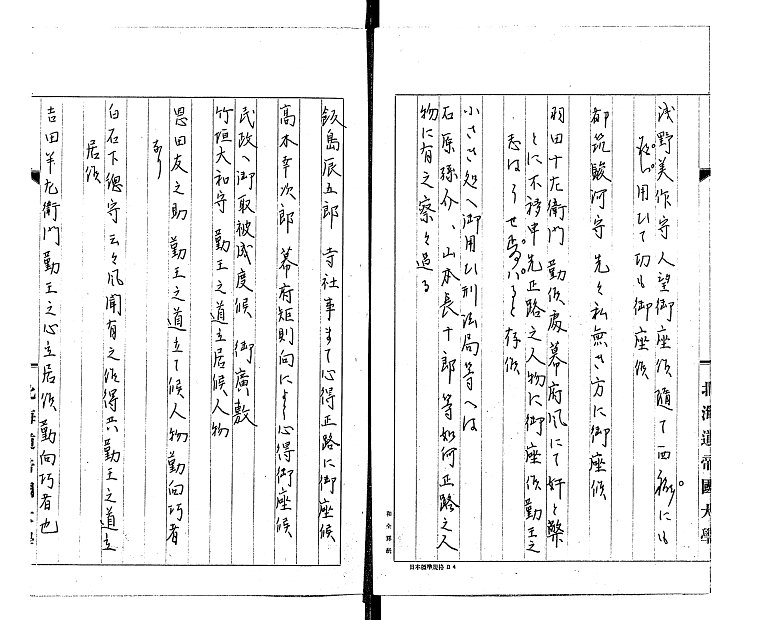 浅野美作守人望御座候随て西郷にも
用ひて切も御座候
都筑駿河守先々私無き方に御座候
羽田十左衛門 勤候處幕府風にて奸と弊
とに不移申先正路之人物に御座候勤王之
志はうせ と存候
小さき処へ御用ひ刑法局等へは
石原孫介、山本長十郎等如何正路之人
物に有之察々過る
飯島辰五郎 寺社事まで心得正路に御座候
高木幸次郎 幕府矩則向により心得御座候
民政へ御取被成度候 御廣敷
竹垣大和守 勤王之道立居候人物
恩田友之助 勤王之道立て候人物勤向巧者
なり
白石下總守 云々風聞有之候得共勤王之道立
居候
吉田羊左衛門 勤王之心立居候勤向巧者也
北海道帝國大學
日本標準規格 B4